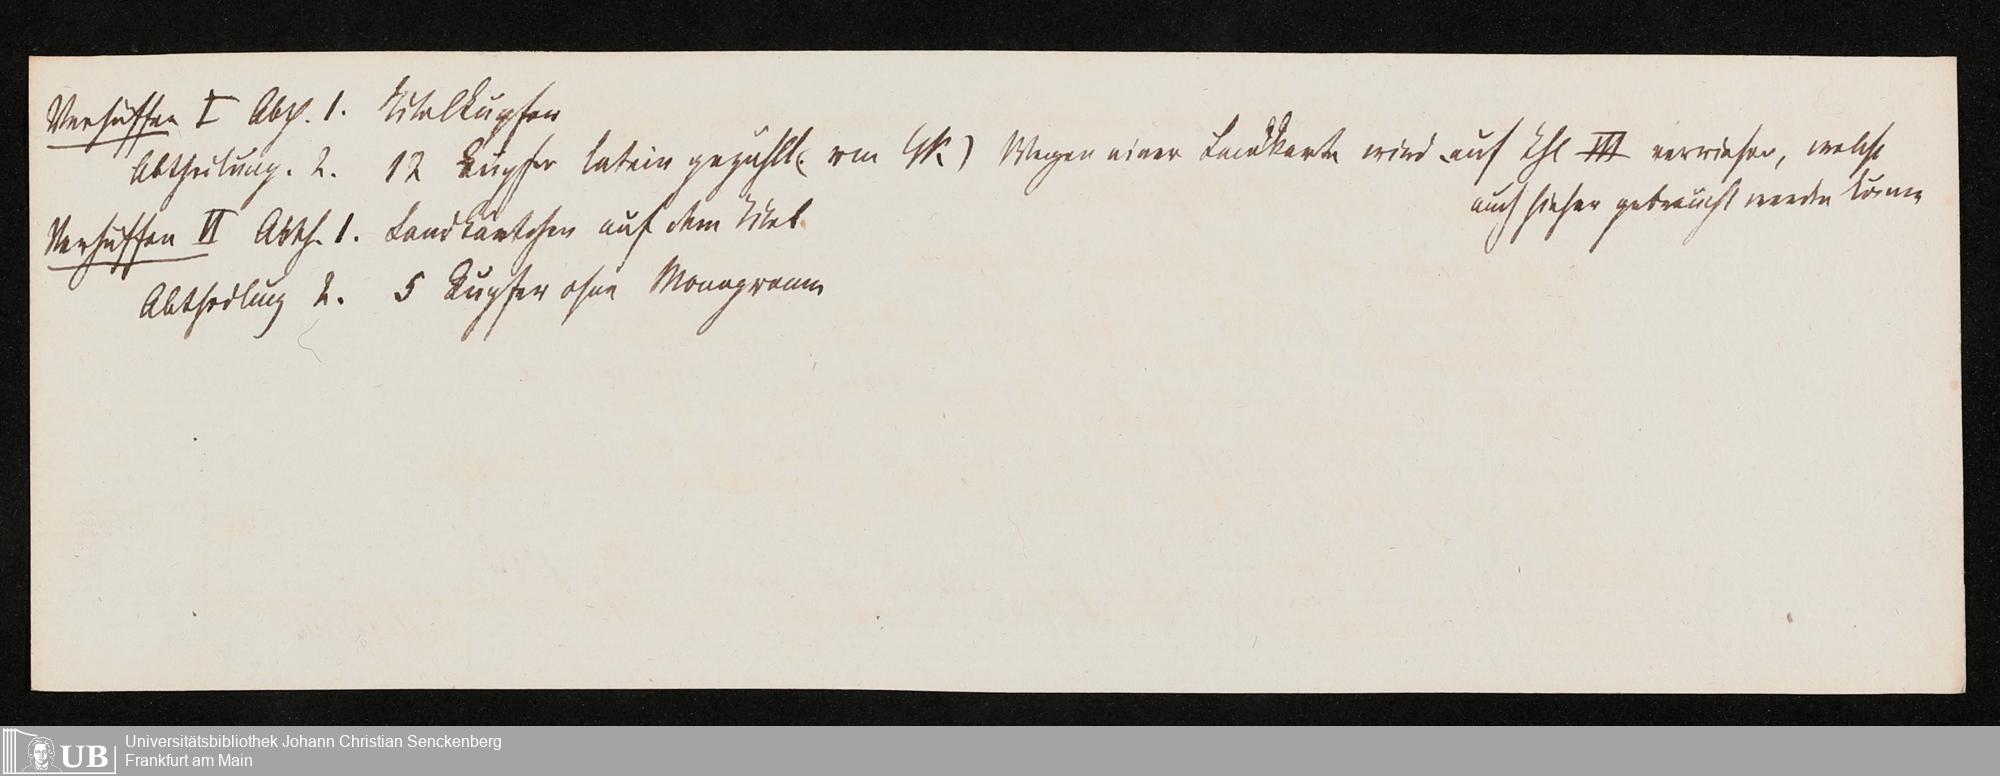 Verhuffen I Abth. 1. Titelkupfer
Abtheilung. 2. 12 Kupfer latein gezählt (von GK) Wegen einer Landkarte wird auf Thl III verwiesen, welche
auch hieher gebraucht werden könne
Verhuffen VI Abth. 1. Landkärtchen auf dem Titel.
Abtheilung 2. 5 Kupfer ohne Monogramm
UB Universitätsbibliothek Johann Christian Senckenberg
Frankfurt am Main